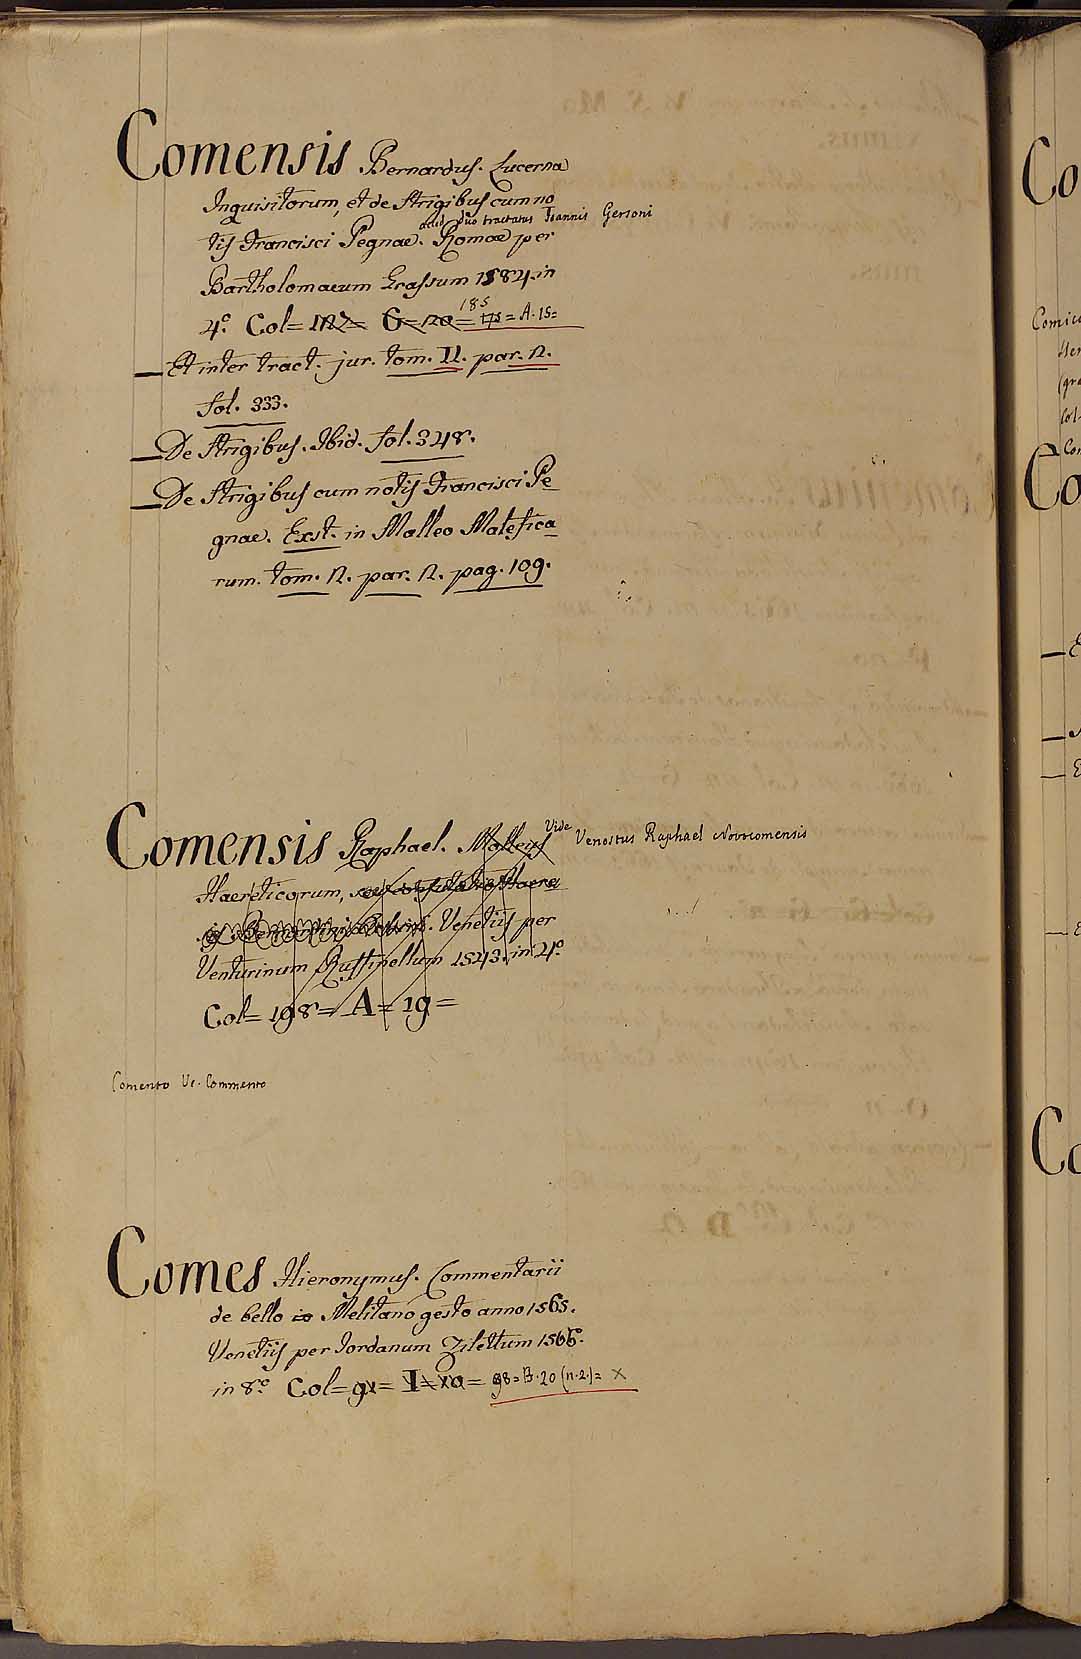 Comensis Bernardus. Lucerna
Inquisitorum, et de Strigibus cum no
acced. duo tractatus Joannis Gersoni
tis Francisci Pegnae. Romae per
Bartholomaeum Grassum 1584. in
185
4.º Col= 127= G=120= 175= A. 15=
Et inter tract. jur. tom. II. par. 2.
fol. 333.
De Strigibus. Ibid. fol. 348.
De Strigibus cum notis Francisci Pe
gnae. Exst. in Malleo Malefica
rum. tom. 2. par. 2. pag. 109.
Comensis Raphael. Malleus Vide Venostus Raphael Novocomensis
Haereticorum,
Venetiis per
Venturinum Ruffinellum 1543. in 4.º
Col= 198= A= 19=
Comento V. Commento
Comes Hieronymus. Commentarii
de bello Melitano gesto anno 1565.
Venetiis per Jordanum Zilettum 1566.
in 8.º Col= 91= I= 10= 98= B. 20 (n. 2.)= X
Co
Comico
Co
Co